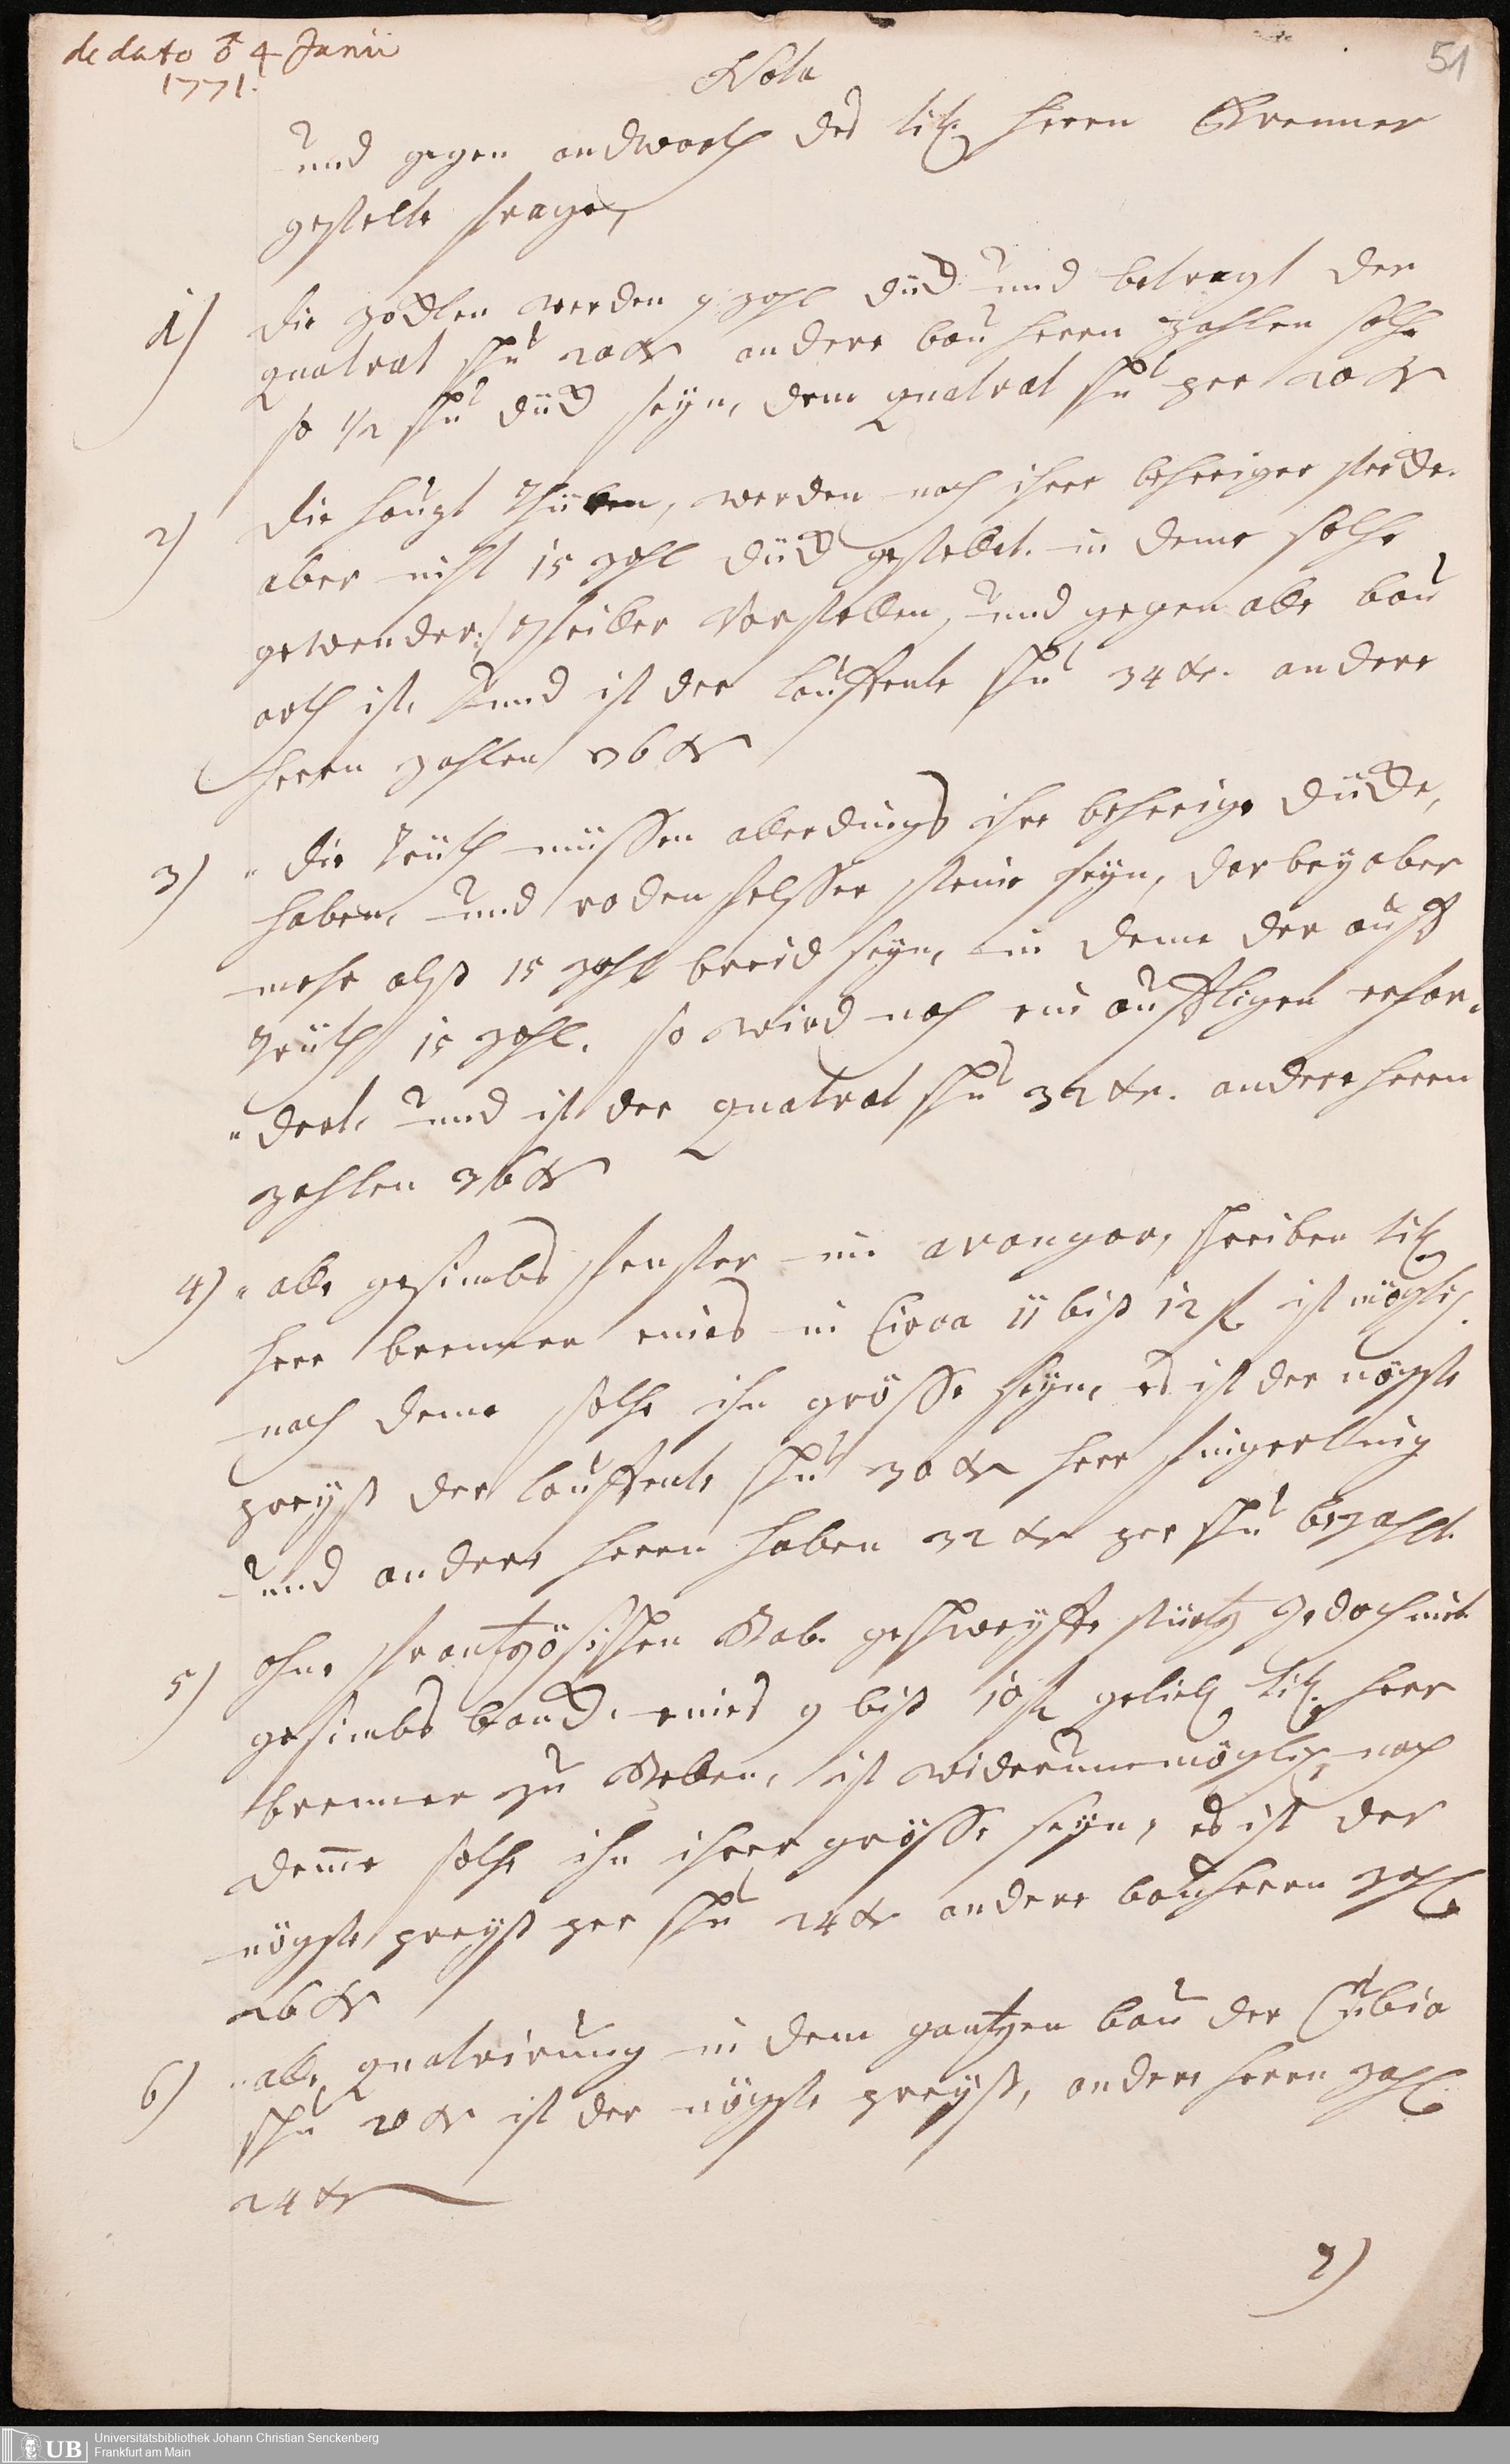 de dato ♂ 4 Junii
1771.
51
Nota
und gegen andworth des tit. Herrn Brenner
gestelte frage,
1) die zodlen werden 9 zohl dück und betragt der
quatrat schu 20 xr andere bau herrn zahlen solche
so 1/2 schu dück seyn, dem quatrat schu per 20 xr
2) die haupt Thüren, werden nach ihrer behoriger stercke.
aber nicht 15 zohl dück gestellet. in deme solche
gewender: pfeiller Vorstellen, und gegen alle bau
arth ist, und ist der lauffente schu 34 xr. andere
herrn zahlen 36 xr
3) die Trüth müssen allerdings ihre behorige dücke,
haben, und roden felsser steine seyn, darbey aber
mehr alß 15 zohl breid seyn, in deme der auff
Trüth 15 zohl. so wird noch ein auffligen erfor¬
dert, und ist der quatrat schu 32 xr. andere herrn
zahlen 36 xr
4) alle gesimbs fenster in arangar, schreiben tit
herr brenner eines in Circa 11 biß 12 fl. ist möglich.
nach deme solche ihn grösse seyn, es ist der nögste
preyß der lauffente schu 30 xr herr fingerling
und andere herrn haben 32 xr per schu bezahlt.
5) ohne frantzösischen Kab. geschweyffte stürtz Jedoch mit
gesimbs band. eines 9 biß 10 fl gelieb tit. herr
brenner zu Geben, ist widerumm möglich nach
deme solche ihn ihrer grösse seyn, es ist der
nögste preyß per schu 24 xr andere bauherrn zahl
26 xr
6) alle quatrirung in dem gantzen bau der Cubic
schu 20 xr ist der nögste preyß, andere herrn zahl
24 xr
7)
Universitätsbibliothek Johann Christian Senckenberg
Frankfurt am Main
UB